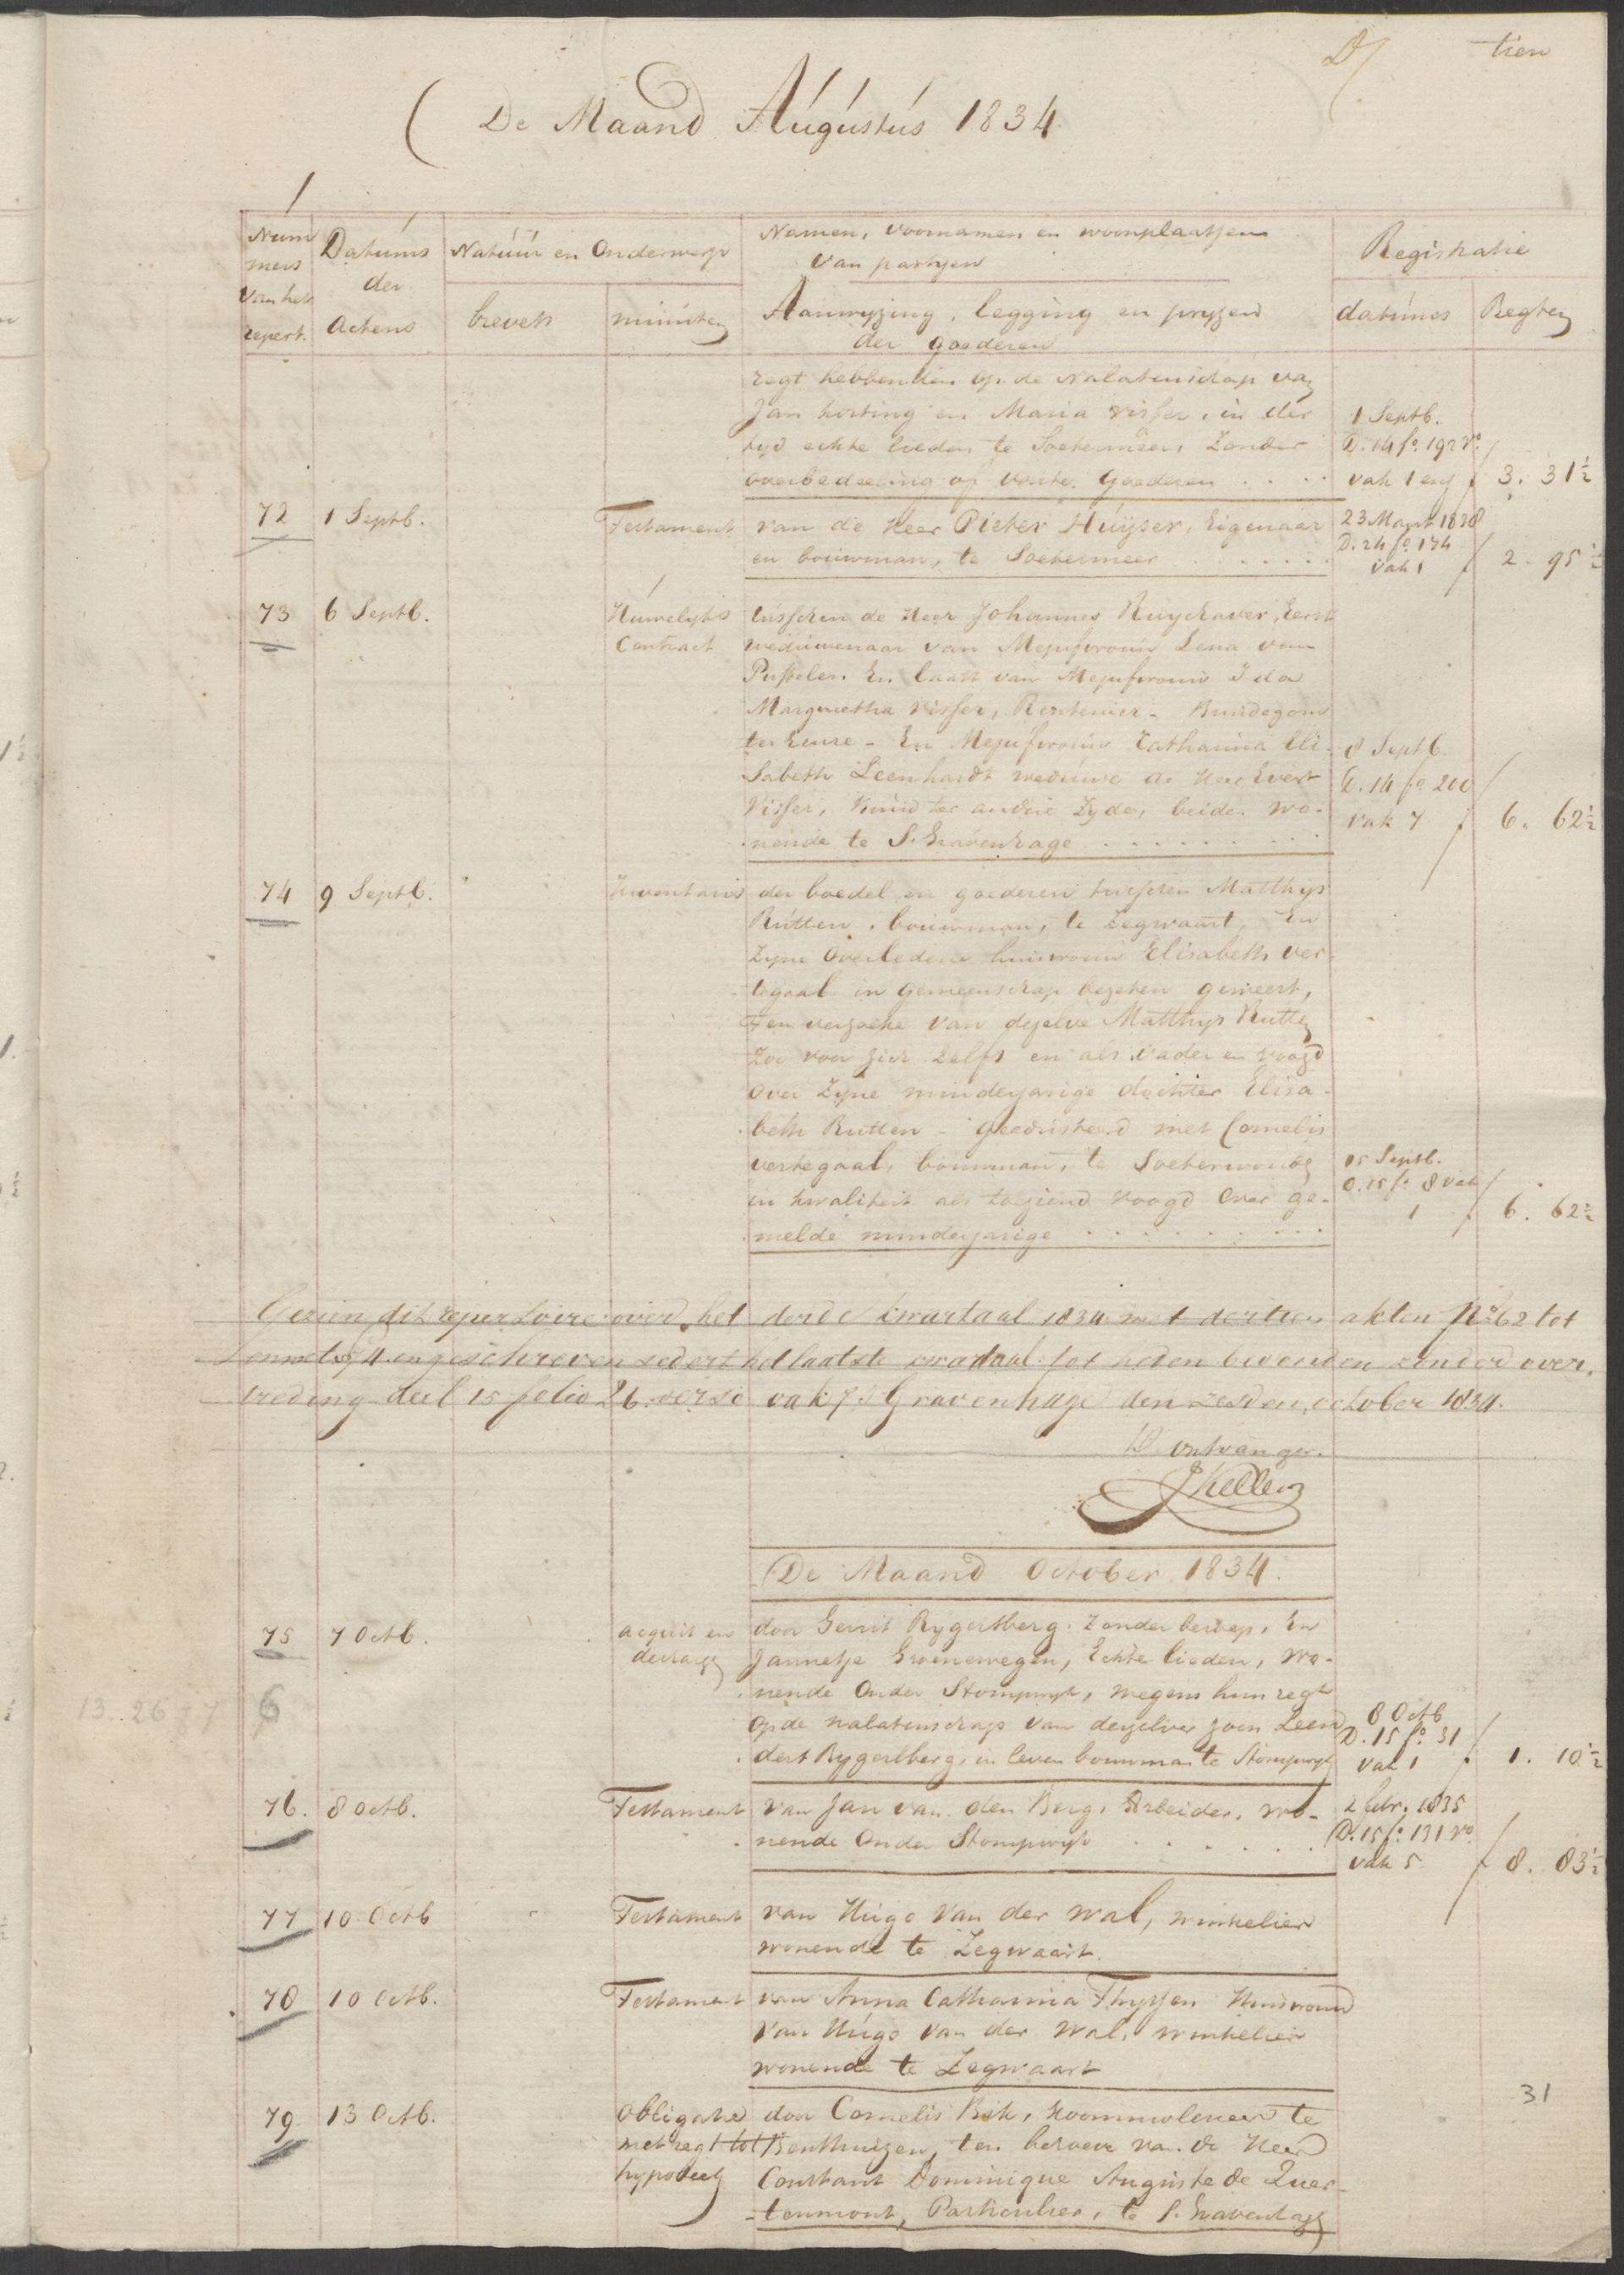 tien
De Maand Augustus 1834
Num
mers
van het
repert.
Datums
der
Actens
Natuur en Onderwerp
brevets
minuten
Namen, voornamen en woonplaatsen
van partyen
Aanwyzing, legging en pryzen
der goederen
Registratie
datums
Regten
regt hebbenden op de nalatenschap van
Jan horting en Maria Visser, in der
tyd echte lieden te Soetermeer, Zonder
overbedeeling of vaste goederen . . . .
1 Septb.
D. 14 fo. 192 vo.
vak 1 en f 3. 31½
72 1 Septb. Testament van de Heer Pieter Huyser, Eigenaar
en bouwman, te Soetermeer . . . . . .
23 Maart 1838
D. 24 fo. 134
vak 1 f 2. 95½
73 6 Septb. Huwelyks tusschen de Heer Johannes Ruychaver, Eerst
Contract weduwenaar van Mejufvrouw Lena van
En laatst van Mejufvrouw Ida
Margaretha Visser, Rentenier - Bruidegom
ter Eenre - En Mejufvrouw Catharina Eli-
sabeth Leenhardt weduwe de Heer Evert
Visser, Bruid ter andere Zyde, beide wo-
nende te S. Gravenhage . . . . . . .
8 Septb.
D. 14 fo. 200
vak 7 f 6. 62½
74 9 Septb. Inventaris der boedel en goederen tusschen Matthys
Rutten, bouwman, te Zegwaart, En
Zyne Overledene huisvrouw Elisabeth ver-
tegaal in gemeenschap bezeten geweest,
ten verzoeke van dezelve Matthys Rutten
Zoo voor zich zelfs en als vader en voogd
over Zyne minderjarige dochter Elisa-
beth Rutten - geadsisteerd met Cornelis
vertegaal, bouwman, te Soeterwoude
in kwaliteit als toeziend voogd over ge-
melde minderjarige . . . . . . . . . .
15 Septb.
D. 15 fo. 8 vak
1 f 6. 62½
Gezien dit repertoire over het derde kwartaal 1834 met dertien akten No. 62 tot
en met 74 ingeschreven sedert het laatste kwartaal tot heden bevonden zonder over-
treding deel 15 folio 26 verso vak 7 's Gravenhage den zesden october 1834.
D. ontvanger.
JKeller
De Maand October 1834.
75 7 Octb. acquit en door Gerrit Rygersberg, Zonder beroep, En
decharge Jannetje Groenewegen, Echte lieden, wo-
nende Onder Stompwyk, wegens hun regt
op de nalatenschap van derzelver zoon Leen
dert Rygersberg, in leven bouwman te Stompwyk
8 Octb
D. 15 fo. 31
vak 1 f 1. 10½
13..26 87 6
76. 8 Octb. Testament van Jan van den Berg, Arbeider, wo-
nende Onder Stompwyk . . . . .
2 febr. 1835
D. 15 fo. 131 vo.
vak 5 f 8. 83½
77 10 Octb Testament van Hugo van der Wal, winkelier
wonende te Zegwaart.
78 10 Octb. Testament van Anna Catharina Thyssen Huisvrouw
van Hugo van der Wal, winkelier
wonende te Zegwaart
79 13 Octb. Obligatie door Cornelis Bok, Koornmolenaar te
met regt tot Benthuizen, ten behoeve van de Heer
hypotheek Constant Dominique Auguste de Quer-
tenmont, Particulier, te S. Gravenhage
31